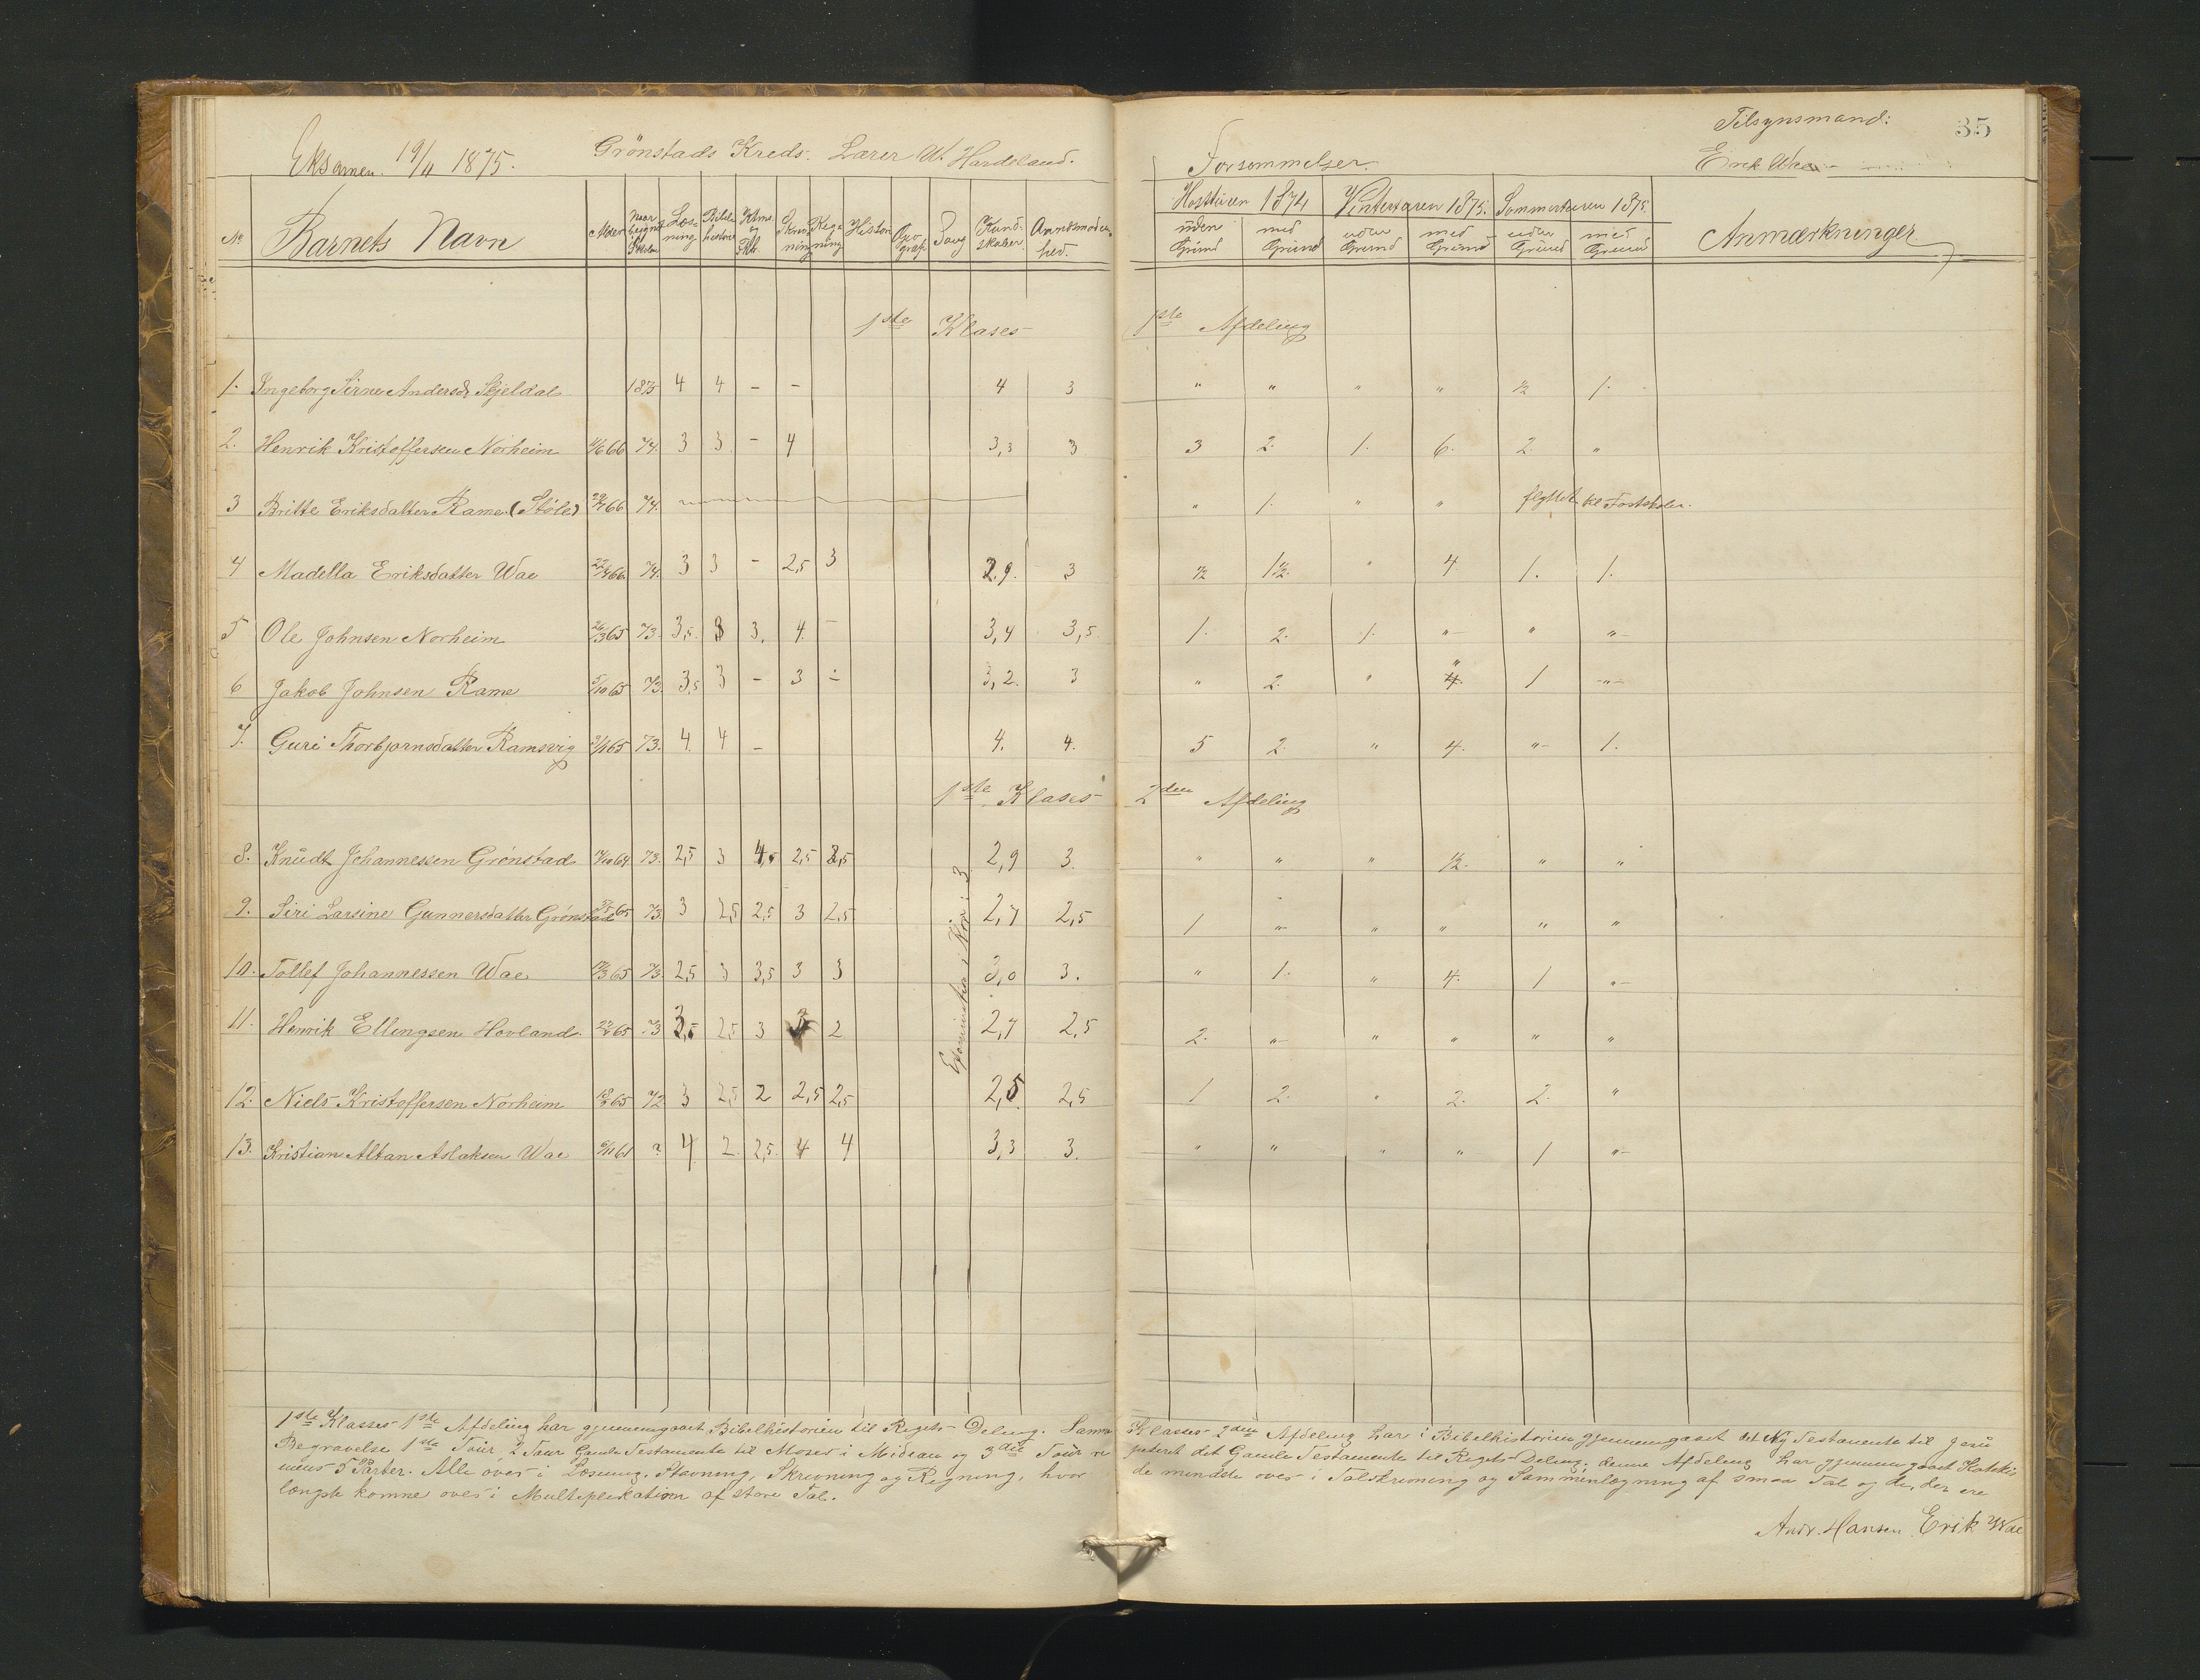 Eksamen 19/11 1875. Grönstads Kreds. Lærer W. Hardeland.
Forsømmelser. Tilsynsmand: 35
Erik Wae
No Barnets Navn Alder Naar begynt Skolen Læsning Bibelhistorie Ktms. og Fkl. Skrivning Regning Historie Geograf. Sang Kundskaber Anvendelse
Høstturen 1874 Vinterturen 1875. Sommerturen 1875. Anmærkninger
uden Grund med Grund uden Grund med Grund uden Grund med Grund
1ste Klases 1ste Afdeling
1. Ingeborg Sirine Andersd. Skjeldal 1875 4 4 - - 4 3 " " " " ½ 1.
2. Henrik Kristoffersen Norheim 11/6 66 74. 3 3 - 4 3,3 3 3 2. 1. 6. 2. "
3 Britte Eriksdatter Rame (Støle) 66 74. " 1. " " flyttet til Fastskolen.
4 Madella Eriksdatter Wae 22/4 66 74. 3 3 - 2,5 3 2,9. 3 ½ 1½. " 4 1. 1.
5 Ole Johnsen Norheim 26/3 65 73. 3,5. 3 3. 4. - 3,4 3,5. 1. 2. 1. " " "
6 Jakob Johnsen Rame 5/10 65 73. 3,5 3 - 3 - 3,2. 3 " 2. " " 1 "
7. Guri Thorbjørnsdatter Ramsvig 65 73. 4. 4 - 4. 4. 5 2. " 4. " 1.
1ste Klases 2den Afdeling
8. Knudt Johannessen Grönstad 64 73. 2,5 3 4,5 2,5 3,5 2,9 3. " " " ½. " "
9. Siri Larsine Gunnersdatter Grönstad 65 73. 3 2,5 2,5 3 2,5 2,7 2,5 1 " " " " "
10. Tollef Johannessen Wae 65 73. 2,5 3 3,5 3 3 3,0 3. " 1. " 4. 1 "
11. Henrik Ellingsen Hovland 65 73 3,5 2,5 3 2 2,7 2,5 2. " " " " "
12. Niels Kristoffersen Norheim 65 72 3 2,5 2 2,5 2,5 2,5. 2,5 1 2. " 2. 2. "
13. Kristian Altan Aslaksen Wae 61 ? 4 2. 2,5. 4 4 3,3 3. " " " " 1 "
i Kor: 3
1ste Klasses 1ste Afdeling har gjennemgaaet Bibelhistorien til Rigets Deling. Samme Klasses 2den Afdeling har i Bibelhistorien gjennemgaaet det Ny Testamente til Jesu
Begravelse 1ste Tuur 2 Tuur Gamle Testamente til Moses i Midian og 3die Tuur repeteret det Gamle Testamente til Rigets Deling; denne Afdeling har gjennemgaaet Katekis
mens 5 Parter. Alle øves i Læsning, Stavning, Skrivning og Regning, hvor de mindste øves i Talskrivning og Sammenlægning af smaa Tal og de, der ere
længst komne øves i Multiplikation af store Tal.
Andr. Hansen Erik Wae